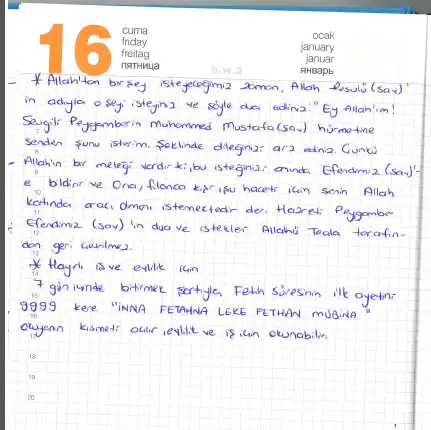 16
cuma
friday
freitag
пятница
ocak
january
januar
январь
* Allah'tan bir şey isteyeceğimiz zaman, Allah Resulü (sav)'
in adıyla o şeyi isteyiniz ve şöyle dua ediniz: "Ey Allah'ım!
Sevgili Peygamberin Muhammed Mustafa (sav) hürmetine
senden şunu isterim. Şeklinde dileğinizi arz ediniz. Çünkü
Allah'ın bir meleği vardır ki, bu isteğinizi anında Efendimiz (sav)'-
e bildirir ve Ona, filanca kişi şu haceti için senin Allah
katında aracı olmanı istemektedir der. Hazreti Peygamber
Efendimiz (sav)'in dua ve istekleri Allahü Teala tarafın-
dan geri çevrilmez.
* Hayırlı iş ve evlilik için
7 gün içinde bitirmek şartıyla, Fetih Sûresinin ilk ayetini
9999 kere "İNNA FETAHNA LEKE FETHAN MÜBİNA"
okuyanın kısmeti açılır, evlilik ve iş için okunabilir.
18
19
20